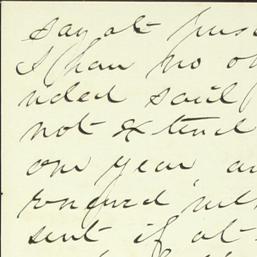 say at
I have no
nded said
not extend
one year, an
renewed
sent if at